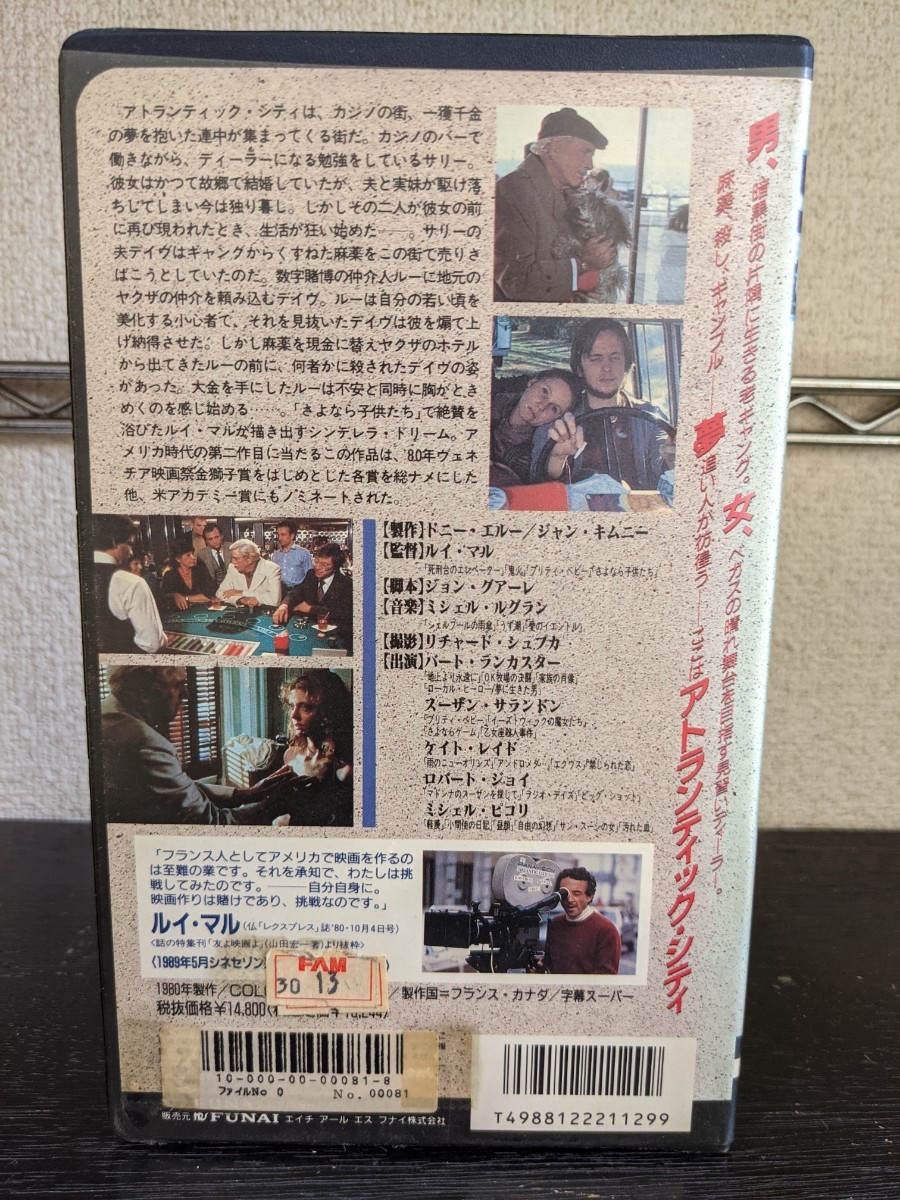 アトランティック・シティは、カジノの街、一攫千金
の夢を抱いた連中が集まってくる街だ。カジノのバーで
働きながら、ディーラーになる勉強をしているサリー。
彼女はかつて故郷で結婚していたが、夫と実妹が駆け落
ちしてしまい今は独り暮し。しかしその二人が彼女の前
に再び現われたとき、生活が狂い始めた――。サリーの
夫デイヴはギャングからくすねた麻薬をこの街で売りさ
ばこうとしていたのだ。数字賭博の仲介人ルーに地元の
ヤクザの仲介を頼み込むデイヴ。ルーは自分の若い頃を
美化する小心者で、それを見抜いたデイヴは彼を煽て上
げ納得させた。しかし麻薬を現金に替えヤクザのホテル
から出てきたルーの前に、何者かに殺されたデイヴの姿
があった。大金を手にしたルーは不安と同時に胸がとき
めくのを感じ始める……。「さよなら子供たち」で絶賛を
浴びたルイ・マルが描き出すシンデレラ・ドリーム。ア
メリカ時代の第二作目に当たるこの作品は、'80年ヴェネ
チア映画祭金獅子賞をはじめとした各賞を総ナメにした
他、米アカデミー賞にもノミネートされた。
男、暗黒街の片隅に生きる老ギャング。女、ベガスの晴れ舞台を目指す見習いディーラー。
麻薬、殺し、ギャンブル――夢追い人が彷徨う――ここはアトランティック・シティ
【製作】ドニー・エルー/ジャン・キムニー
【監督】ルイ・マル
「死刑台のエレベーター」「鬼火」「プリティ・ベビー」「さよなら子供たち」
【脚本】ジョン・グアーレ
【音楽】ミシェル・ルグラン
「シェルブールの雨傘」「うず潮」「愛のイエントル」
【撮影】リチャード・シュプカ
【出演】バート・ランカスター
「地上より永遠に」「OK牧場の決闘」「家族の肖像」
「ローカル・ヒーロー/夢に生きた男」
スーザン・サランドン
「プリティ・ベビー」「イーストウィックの魔女たち」
「さよならゲーム」「乙女座殺人事件」
ケイト・レイド
「雨のニューオリンズ」「アンドロメダ…」「エクウス」「禁じられた恋」
ロバート・ジョイ
「マドンナのスーザンを探して」「ラジオ・デイズ」「ビッグ・ショット」
ミシェル・ピコリ
「軽蔑」「小間使の日記」「昼顔」「自由の幻想」「サン・スーシの女」「汚れた血」
「フランス人としてアメリカで映画を作るの
は至難の業です。それを承知で、わたしは挑
戦してみたのです。――自分自身に。
映画作りは賭けであり、挑戦なのです。」
ルイ・マル(仏「レクスプレス」誌'80・10月4日号)
〈話の特集刊「友よ映画よ」(山田宏一著)より抜粋〉
〈1989年5月シネセゾン
FAM
30 13
1980年製作/COL
/製作国=フランス・カナダ/字幕スーパー
税抜価格¥14,800
10-000-00-00081-8
ファイルNo 0 No. 00081
T4988122211299
販売元 HRS FUNAI エイチ アール エス フナイ株式会社